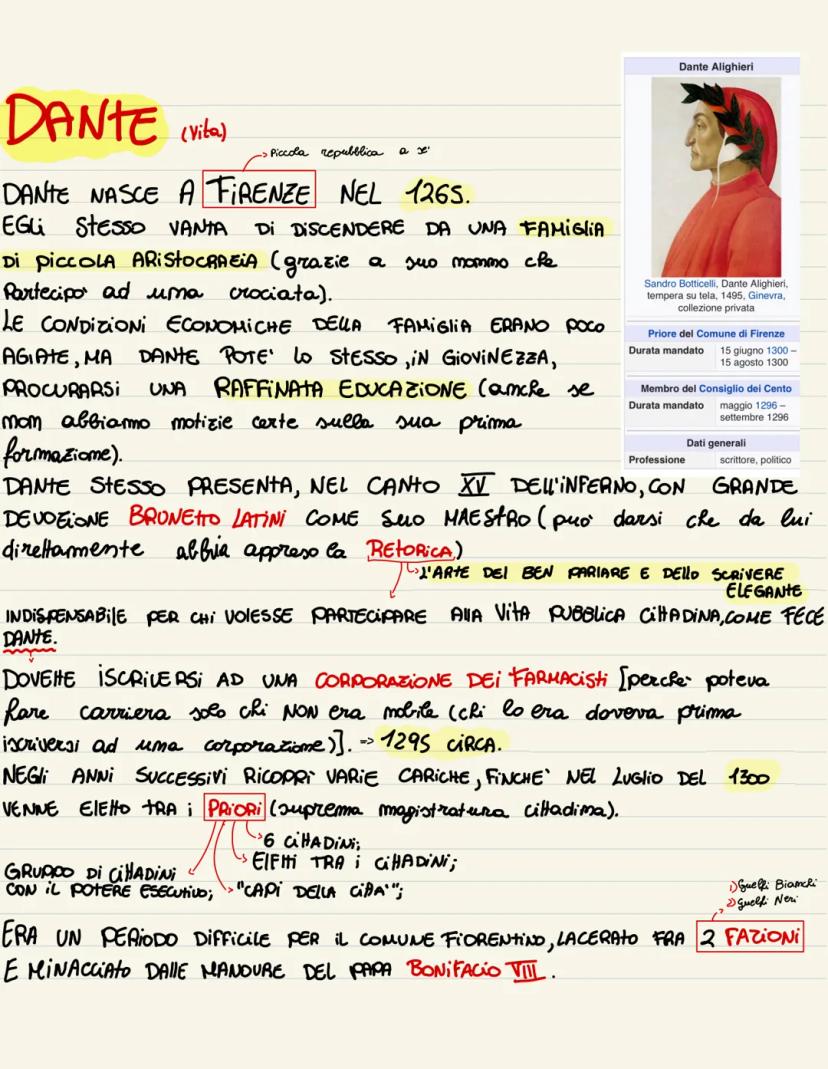 DANTE (Vita)
→ Piccola repubblica a se'
DANTE NASCE A FIRENZE NEL 1265.
EGLI STESSO VANTA DI DISCENDERE DA UNA FAMIGLIA
DI PICCOLA ARISTOCRAZIA (grazie a suo nonno che
Partecipò ad una crociata).
LE CONDIZIONI ECONOMICHE DELLA FAMIGLIA ERANO POCO
AGIATE, MA DANTE POTE' LO STESSO, IN GIOVINEZZA,
PROCURARSI UNA RAFFINATA EDUCAZIONE (anche se
non abbiamo notizie certe sulla sua prima
formazione).
Dante Alighieri
Sandro Botticelli, Dante Alighieri,
tempera su tela, 1495, Ginevra,
collezione privata
Priore del Comune di Firenze
Durata mandato 15 giugno 1300 –
15 agosto 1300
Membro del Consiglio dei Cento
Durata mandato maggio 1296 –
settembre 1296
Dati generali
Professione scrittore, politico
DANTE STESSO PRESENTA, NEL CANTO XV DELL'INFERNO, CON GRANDE
DEVOZIONE BRUNETTO LATINI COME SUO MAESTRO (può darsi che da lui
direttamente abbia appreso la RETORICA)
→ L'ARTE DEL BEN PARLARE E DELLO SCRIVERE
ELEGANTE
INDISPENSABILE PER CHI VOLESSE PARTECIPARE ALLA VITA PUBBLICA CITTADINA, COME FECE
DANTE.
DOVETTE ISCRIVERSI AD UNA CORPORAZIONE DEI FARMACISTI [perchè poteva
fare carriera solo chi NON era nobile (chi lo era doveva prima
iscriversi ad una corporazione)]. => 1295 CIRCA.
NEGLI ANNI SUCCESSIVI RICOPRÌ VARIE CARICHE, FINCHE' NEL LUGLIO DEL 1300
VENNE ELETTO TRA I PRIORI (suprema magistratura cittadina).
→ 6 CITTADINI;
→ ELETTI TRA I CITTADINI;
GRUPPO DI CITTADINI
CON IL POTERE ESECUTIVO; → "CAPI DELLA CITTA'";
1) Guelfi Bianchi
2) Guelfi Neri
ERA UN PERIODO DIFFICILE PER IL COMUNE FIORENTINO, LACERATO FRA 2 FAZIONI
E MINACCIATO DALLE MANOVRE DEL PAPA BONIFACIO VIII.